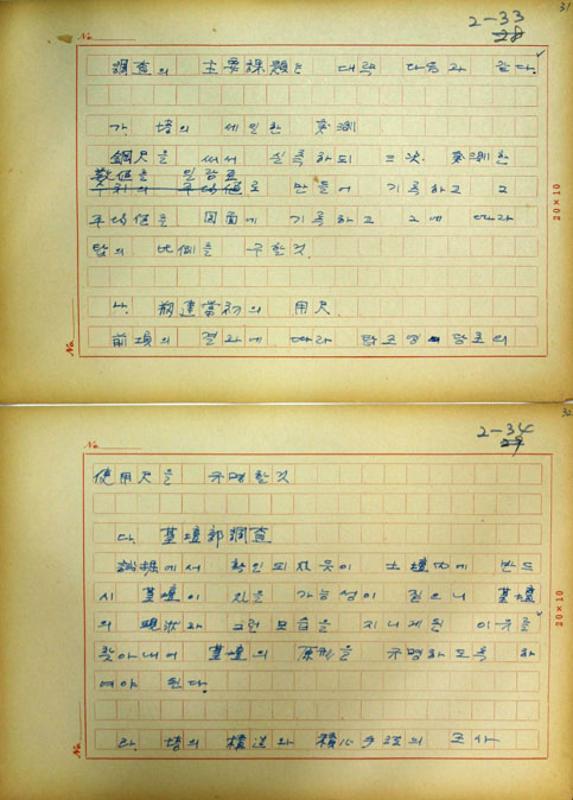 31
2-33
28
No.
調査의 主要課題는 대략 다음과 같다.
가. 塔의 세밀한 実測
鋼尺을 써서 실측하되 三次 実測한
数値를
平均値로 만들어 기록하고 그
平均値를 図面에 기록하고 그에 따라
탑의 比例를 구할것
나. 創建當初의 用尺
前項의 결과에 따라 탑조영 당초의
20×10
No.
32
2-34
29
No.
使用尺을 규명할것
다. 基壇部調査
試掘에서 확인되었듯이 土壇内에 반드
시 基壇이 있을 가능성이 짙으니 基壇
의 現状과 그런 모습을 지니게된 이유를
찾아내어 基壇의 原形을 규명하도록 하
여야 된다.
라. 塔의 構造와 積心手法의 조사
20×10
No.